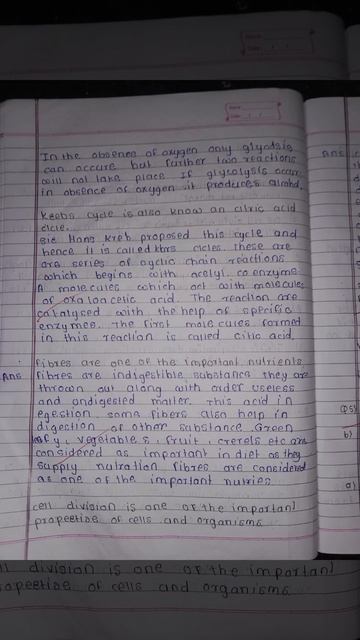 In the absence of oxygen only glyodsis
can accure but further two reactions
will not take place If glycolysis occur
in obsence of oxygen it produces alcohol.
Keebs cycle is also know an citric acid
cicle.
Sie Hans Kreb proposed this cycle and
hence it is called kbrs cicles. These are
ara series of cyclic chain reactions
which begins with acetyl. co enzyme
A molecules which act with molecules
of oxaloacetic acid. The reaction are
catalysed with the help of specific
enzymes. The first molecules formed
in this reaction is called citic acid.
fibres are one of the important nutrients
Ans
fibres are indigestible substance they are
thrown out along with order useless
and ondigested matter. This acid in
egestion. soma fibers also help in
digestion of other substance Green
leafy, vegetables, fruit, crerels etc are
considered as important in diet as they
supply nutration fibres are considered
as one of the important nutries
cell division is one of the important
propeetise of cells and organisms
Ans
Q5)
b)
a)
division is one of the important
opeetise of cells and organisms